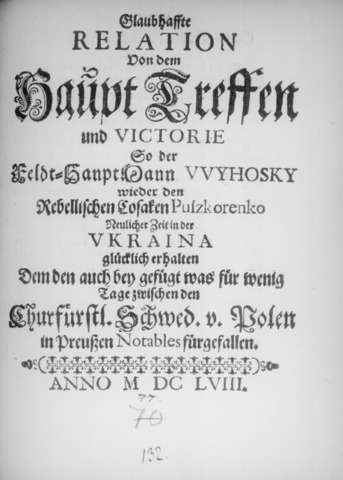 Glaubhaffte
RELATION
Von dem
Haupt Treffen
und VICTORIE
So der
Feldt-Haupt Mann VVYHOSKY
wieder den
Rebellischen Cosaken Puſzkorenko
Neulicher Zeit in der
VKRAINA
glücklich erhalten
Dem den auch bey gefügt was für wenig
Tage zwischen den
Churfürstl. Schwed. v. Polen
in Preußen Notables fürgefallen.
ANNO M DC LVIII.
77
70
132.